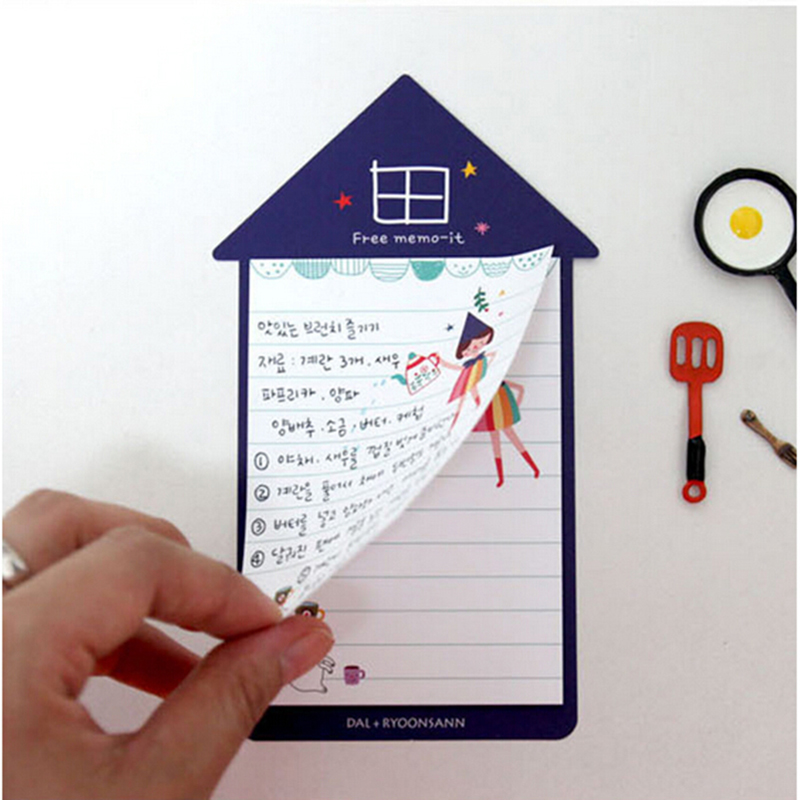 Free memo-it
맛있는 브런치 즐기기
재료 : 계란 3개 . 새우
파프리카 . 양파
양배추 . 소금 . 버터 . 케첩
① 야채 . 새우를 껍질 벗겨
② 계란을 풀어서
③ 버터를 넣고
④ 달궈진 팬에
⑤
DAL + RYOONSANN